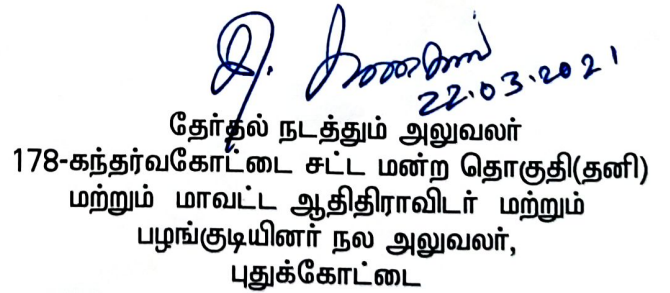 22.03.2021
தேர்தல் நடத்தும் அலுவலர்
178-கந்தர்வகோட்டை சட்ட மன்ற தொகுதி(தனி)
மற்றும் மாவட்ட ஆதிதிராவிடர் மற்றும்
பழங்குடியினர் நல அலுவலர்,
புதுக்கோட்டை